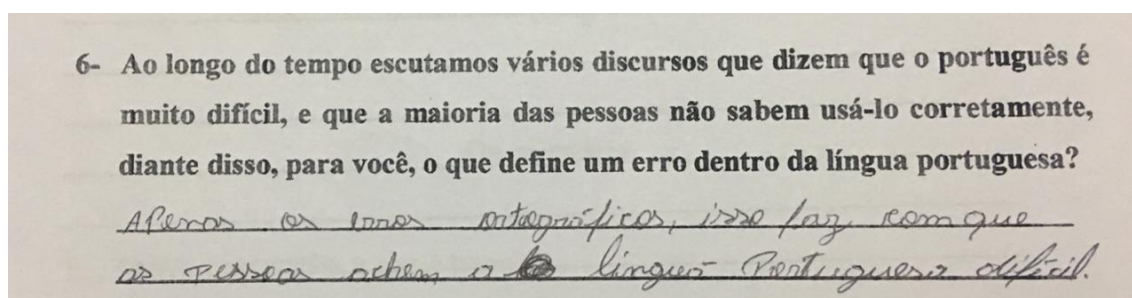 6- Ao longo do tempo escutamos vários discursos que dizem que o português é
muito difícil, e que a maioria das pessoas não sabem usá-lo corretamente,
diante disso, para você, o que define um erro dentro da língua portuguesa?
Apenas os erros ortográficos, isso faz com que
as pessoas achem a língua Portuguesa difícil.